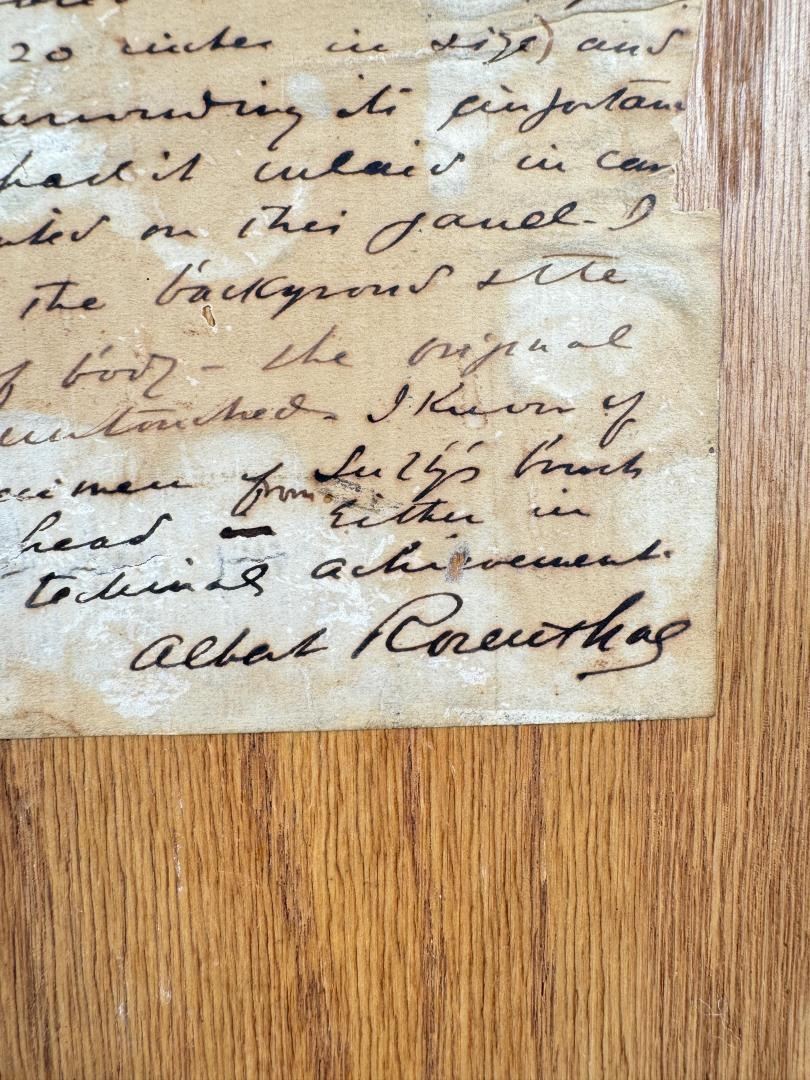 20 inches in size) and
surrounding its importan
had it inlaid in can
nted on this panel - I
the background & the
of body - the original
untouched. I know of
cimen from Sully's brush
head - Either in
technical achievement.
Albert Rosenthal